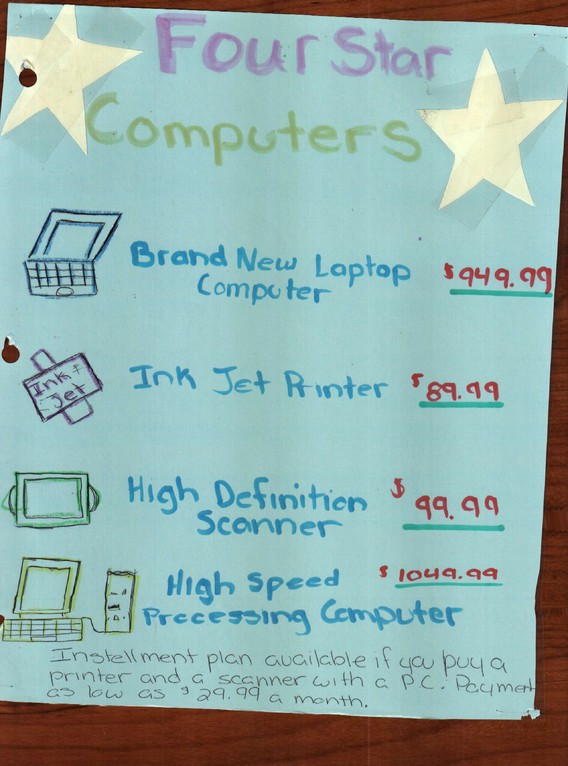 Four Star
Computers
Brand New Laptop $949.99
Computer
Ink Jet
Ink Jet Printer $89.99
High Definition $99.99
Scanner
High Speed $1049.99
Processing Computer
Instellment plan available if you buy a
printer and a scanner with a P.C. Payment
as low as $29.99 a month.